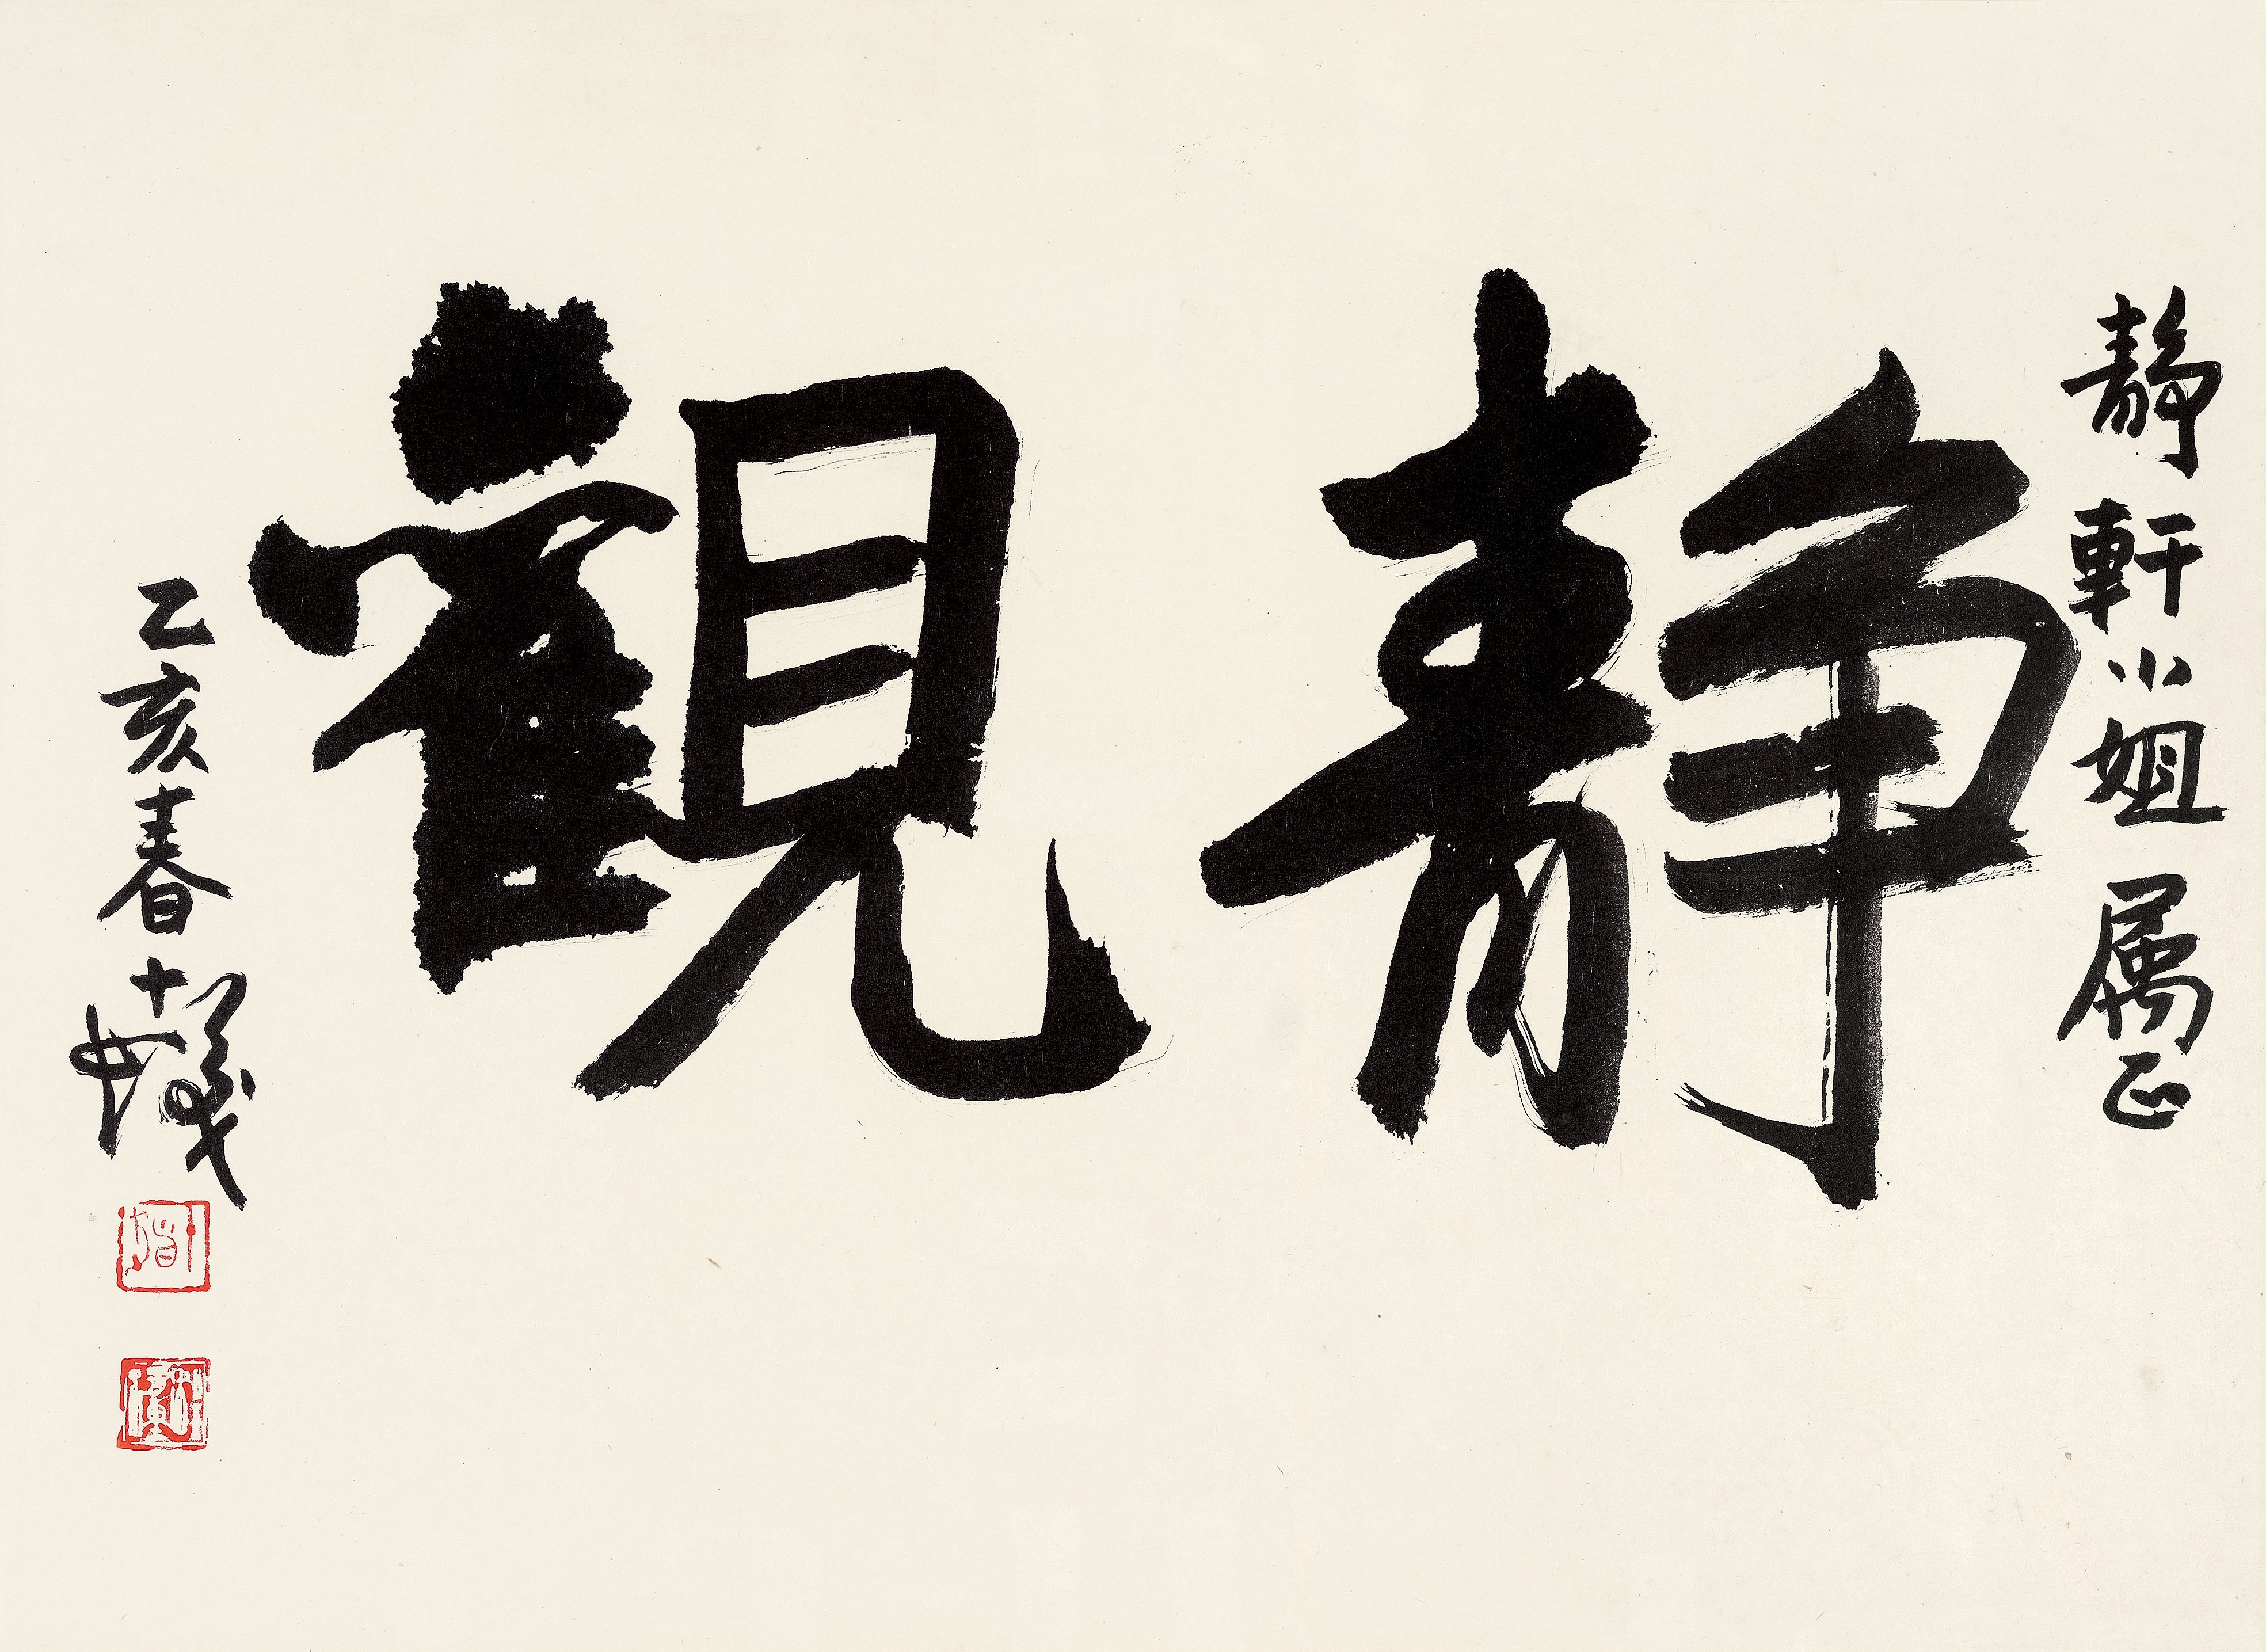 靜軒小姐屬正
靜觀
乙亥春十